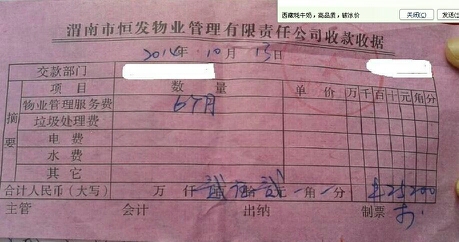 西藏牦牛奶，高品质，破冰价
关闭(C)
发送(
渭南市恒发物业管理有限责任公司收款收据
2014年10月13日
交款部门
项目 数量 单价 万千百十元角分
摘要
物业管理服务费 6个月
垃圾处理费
电费
水费
其它
合计人民币（大写） 万 仟 贰佰 元 角 分 ¥25200
主管 会计 出纳 制票